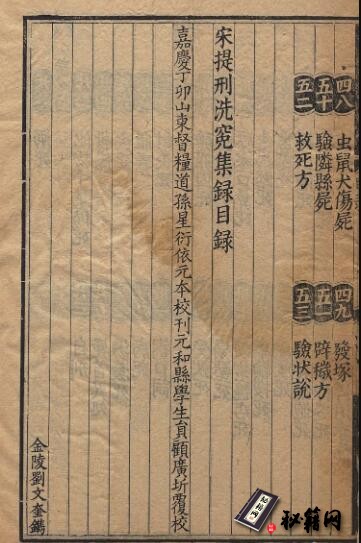 四八 虫鼠犬傷屍 四九 發塚
五十 驗隣縣屍 五一 辟穢方
五二 救死方 五三 驗状說
宋提刑洗寃集録目録
嘉慶丁卯山東督糧道孫星衍依元本校刊元和縣學生員顧廣圻覆校
金陵劉文奎鐫
秘籍网
秘籍网